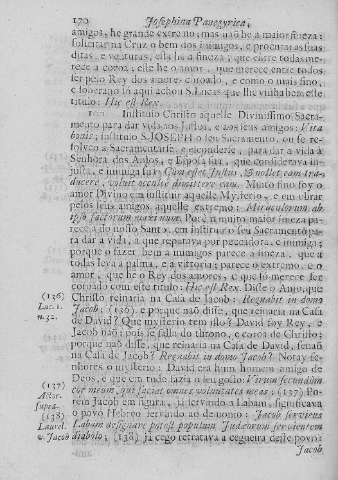 170 Josephina Panegyrica,
amigos, he grande extremo; mas não he a maior fineza:
solicitar na Cruz o bem dos inimigos, e procurar as suas
ditas, e venturas, essa he a fineza, que entre todas mere-
ce a coroa; esse he o amor, que merece entre todos
ser pelo Rey dos amores coroado, e como o mais fino,
e soberano so aqui achou S. Lucas que lhe vinha bem este
titulo: Hic est Rex.
Instituio Christo aquelle Divinissimo Sacra-
mento para dar vida aos Justos, e aos seus amigos: Vita
bonis; instituio S. JOSEPH o seu Sacramento, ou se re-
solveo a Sacramentarse, e esconderse, para dar a vida á
Senhora dos Anjos, e Esposa sua, que considerava in-
justa, e inimiga sua: Cum esset Justus, & nollet eam tra-
ducere, voluit occulte dimittere eam. Muito fino foy o
amor Divino em instituir aquelle Mysterio, e em obrar
pelos seus amigos aquelle extremo: Miraculorum ab
ipso factorum maximum. Porém muito maior fineza pa-
rece a do nosso Santo, em instituir o seu Sacramento pa-
ra dar a vida, a que reputava por peccadora, e inimiga;
porque o fazer bem a inimigos parece a fineza, que a
todas leva a palma, e a vitoria; parece o extremo, e o
amor, que he o Rey dos amores, e que só merece ser
coroado com este titulo: Hic est Rex. Disse o Anjo, que
(136) Christo reinaria na Casa de Jacob: Regnabit in domo
Luc. 1. Jacob; (136) e porque não disse, que reinaria na Casa
n. 32. de David? Que mysterio tem isso? David foy Rey, e
Jacob não; pois se falla do throno, e coroa de Christo;
porque não disse, que reinaria na Casa de David, senão
na Casa de Jacob? Regnabit in domo Jacob? Notay se-
nhores o mysterio: David era hum homem amigo de
Deos, e que em tudo fazia o seu gosto: Virum secundum
(137) cor meum, qui faciat omnes voluntates meas; (137) Po-
Actor. rem Jacob em figura, já servindo a Labam, significava
supra. o povo Hebreo servindo ao demonio: Jacob serviens
(138) Labam designare potest populum Judæorum servientem
Laurel. diabolo; (138) já cego retratava a cegueira desse povo:
v. Jacob
Jacob